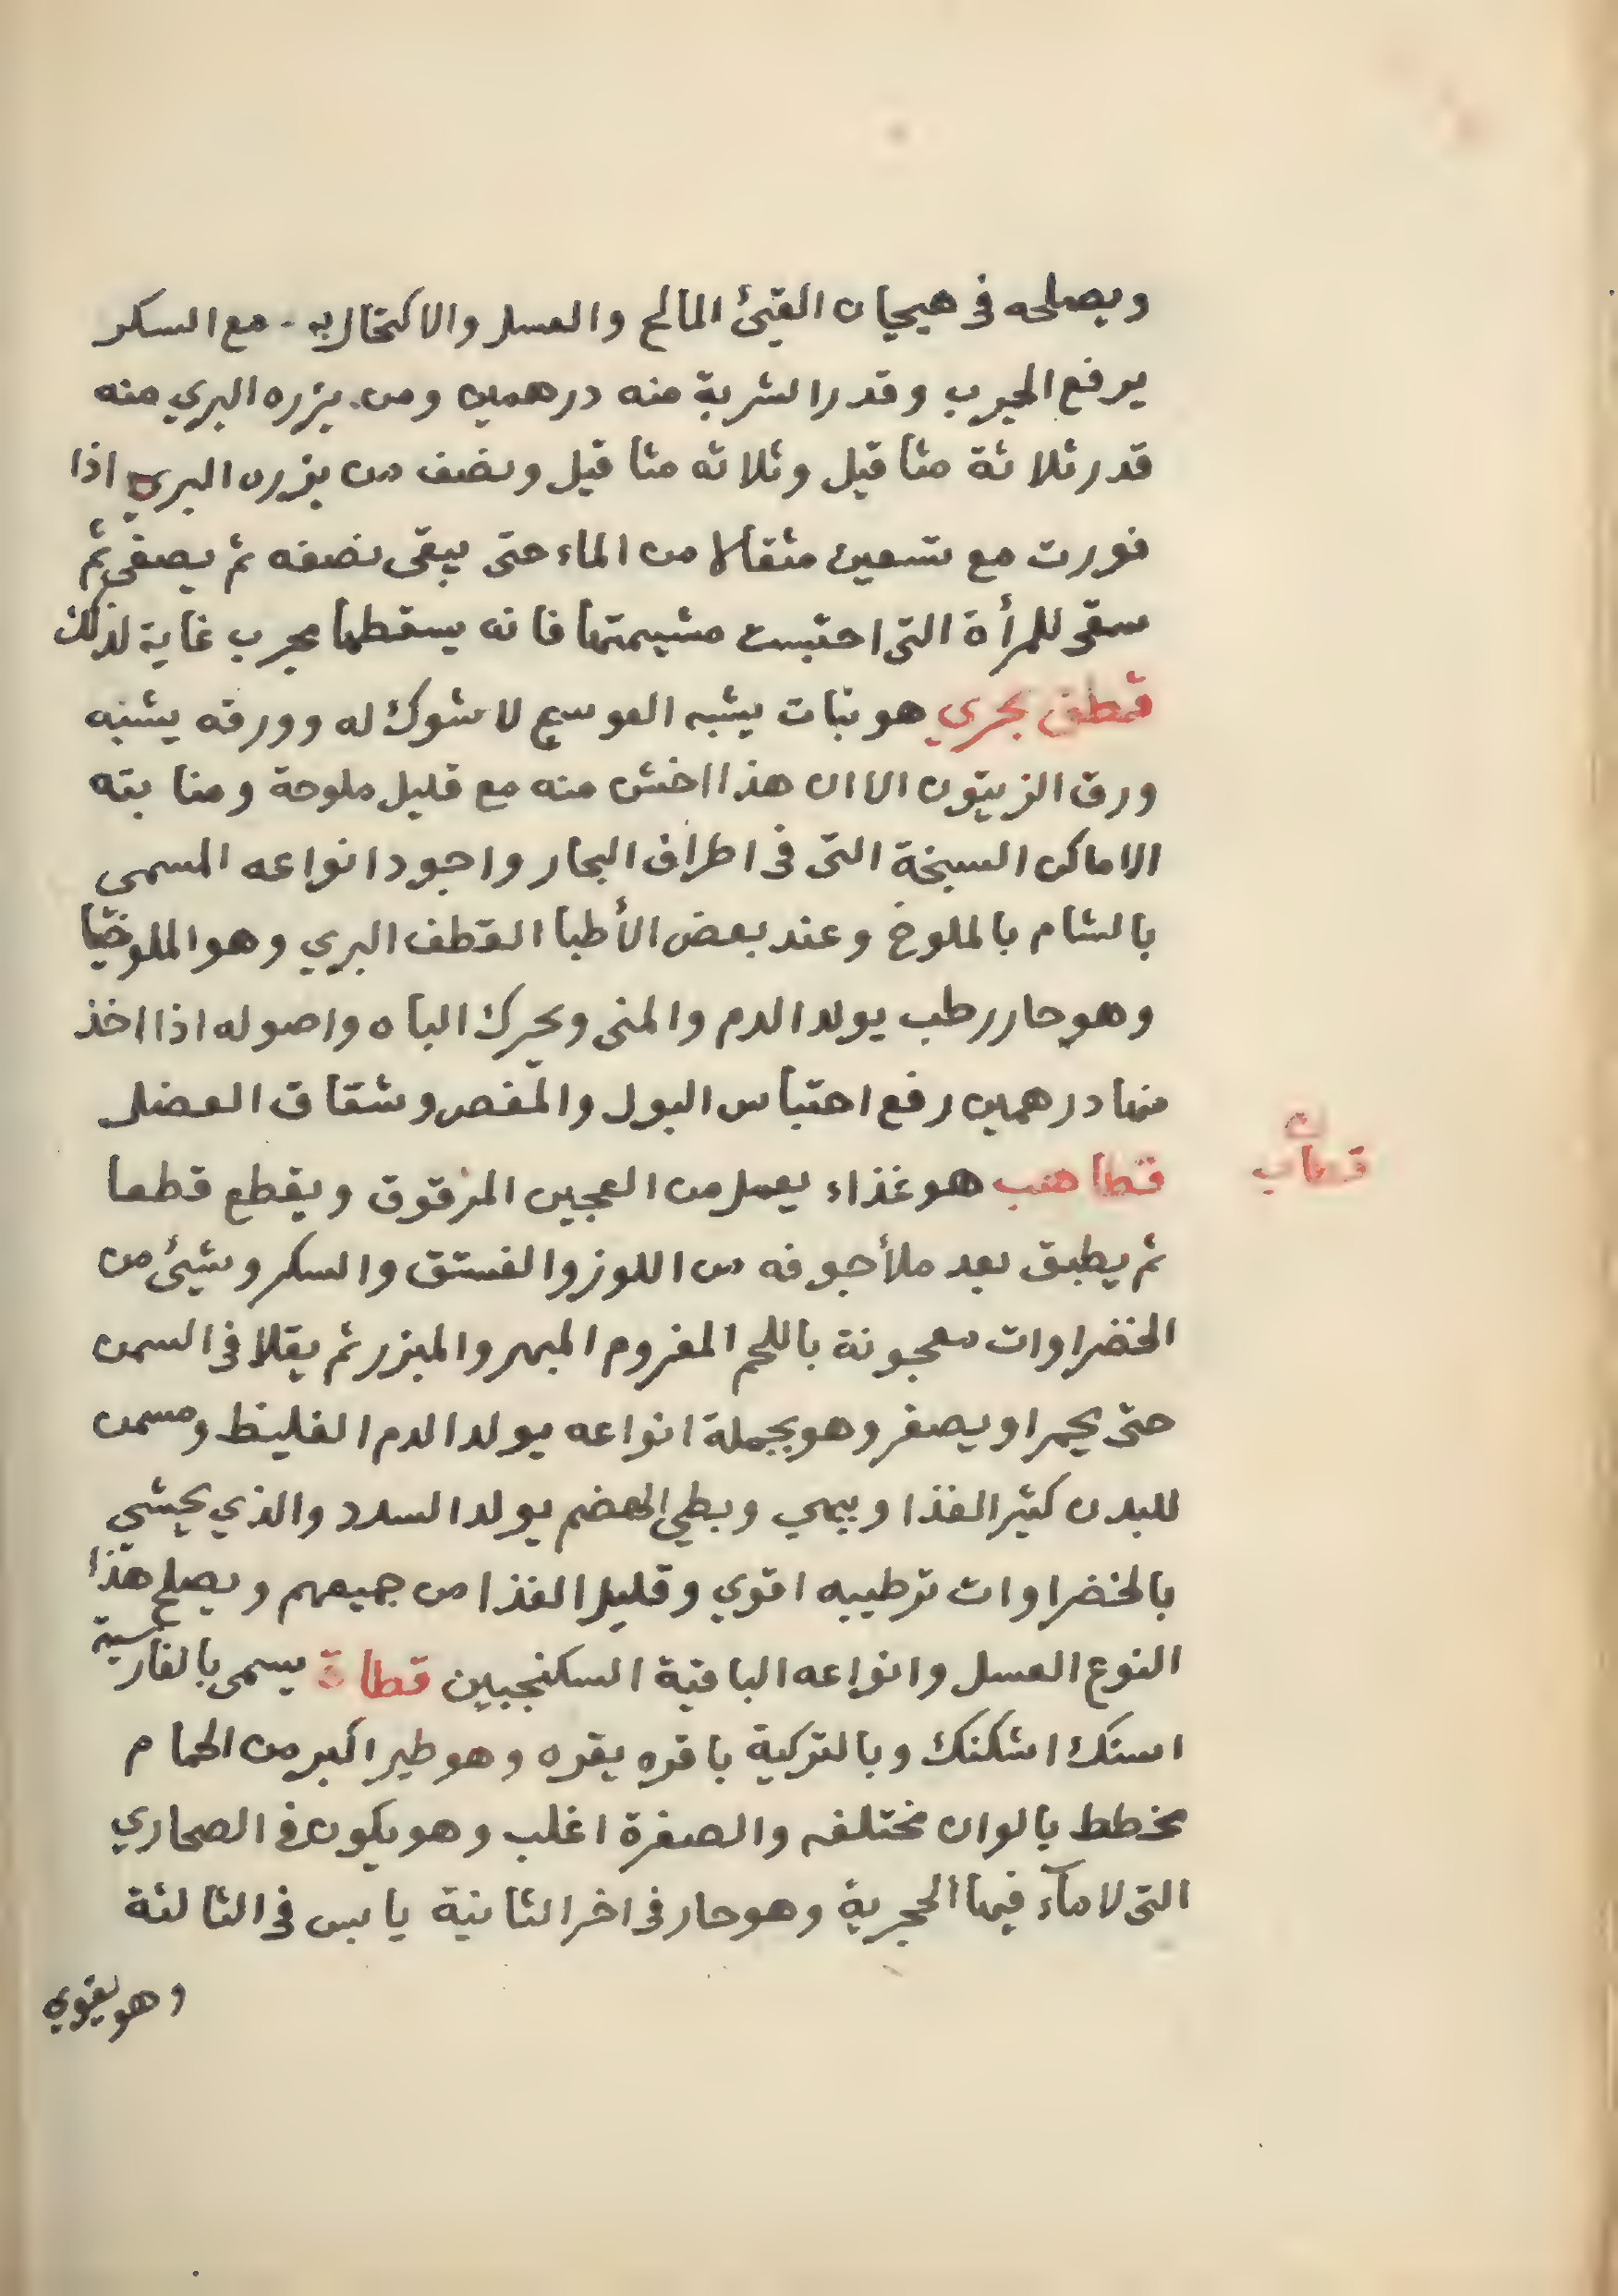 ويصلحه في هيجان القيئ المالح والعسل والاكتحال به مع السكر
يرفع الجرب وقدر الشربة منه درهمين ومن بزره البري منه
قدر ثلاثة مثاقيل وثلاثه مثاقيل ونصف من بزره البري اذا
فورت مع تسعين مثقالا من الماء حتى يبقى نصفه ثم يصفى ثم
سقى للمرأة التى احتبست مشيمتها فانه يسقطها مجرب غاية لذلك
قطف بحري هو نبات يشبه العوسج لا شوك له وورقه يشبه
ورق الزيتون الا ان هذا اخشن منه مع قليل ملوحة ومنابته
الاماكن السبخة التى فى اطراف البحار واجود انواعه المسمى
بالشام بالملوخ وعند بعض الأطبا القطف البري وهو الملوخيا
وهو حار رطب يولد الدم والمنى ويحرك الباه واصوله اذا اخذ
منها درهمين رفع احتباس البول والمغص وشقاق العضل
قطاهب هو غذاء يعمل من العجين المرقوق ويقطع قطعا
ثم يطبق بعد ملأ جوفه من اللوز والفستق والسكر وشيئ من
الخضراوات معجونة باللحم المفروم المبهر والمبزر ثم يقلا فى السمن
حتى يحمر او يصفر وهو بجملة انواعه يولد الدم الغليظ ومسمن
للبدن كثير الغذا ويبهي وبطي الهضم يولد السدد والذي يحشي
بالخضراوات ترطيبه اقوي وقليل الغذا من جميعهم ويصلح هذا
النوع العسل وانواعه الباقية السكنجبين قطاة يسمى بالفارسية
اسنك اشكنك وبالتركية باقره يقره وهو طير اكبر من الحمام
مخطط بالوان مختلفه والصفرة اغلب وهو يكون فى الصحاري
التى لا مآء فيها الحجرية وهو حار فى اخر الثانية يابس فى الثالثة
وهو يقوي